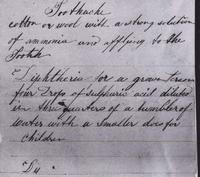 Toothache
cotton or wool with a strong solution
of ammonia and applying to the
Tooth
Diphtheria for a grown person
four Drops of sulphuric acid diluted
in three quarters of a tumbler of
water with a smaller dose for
children